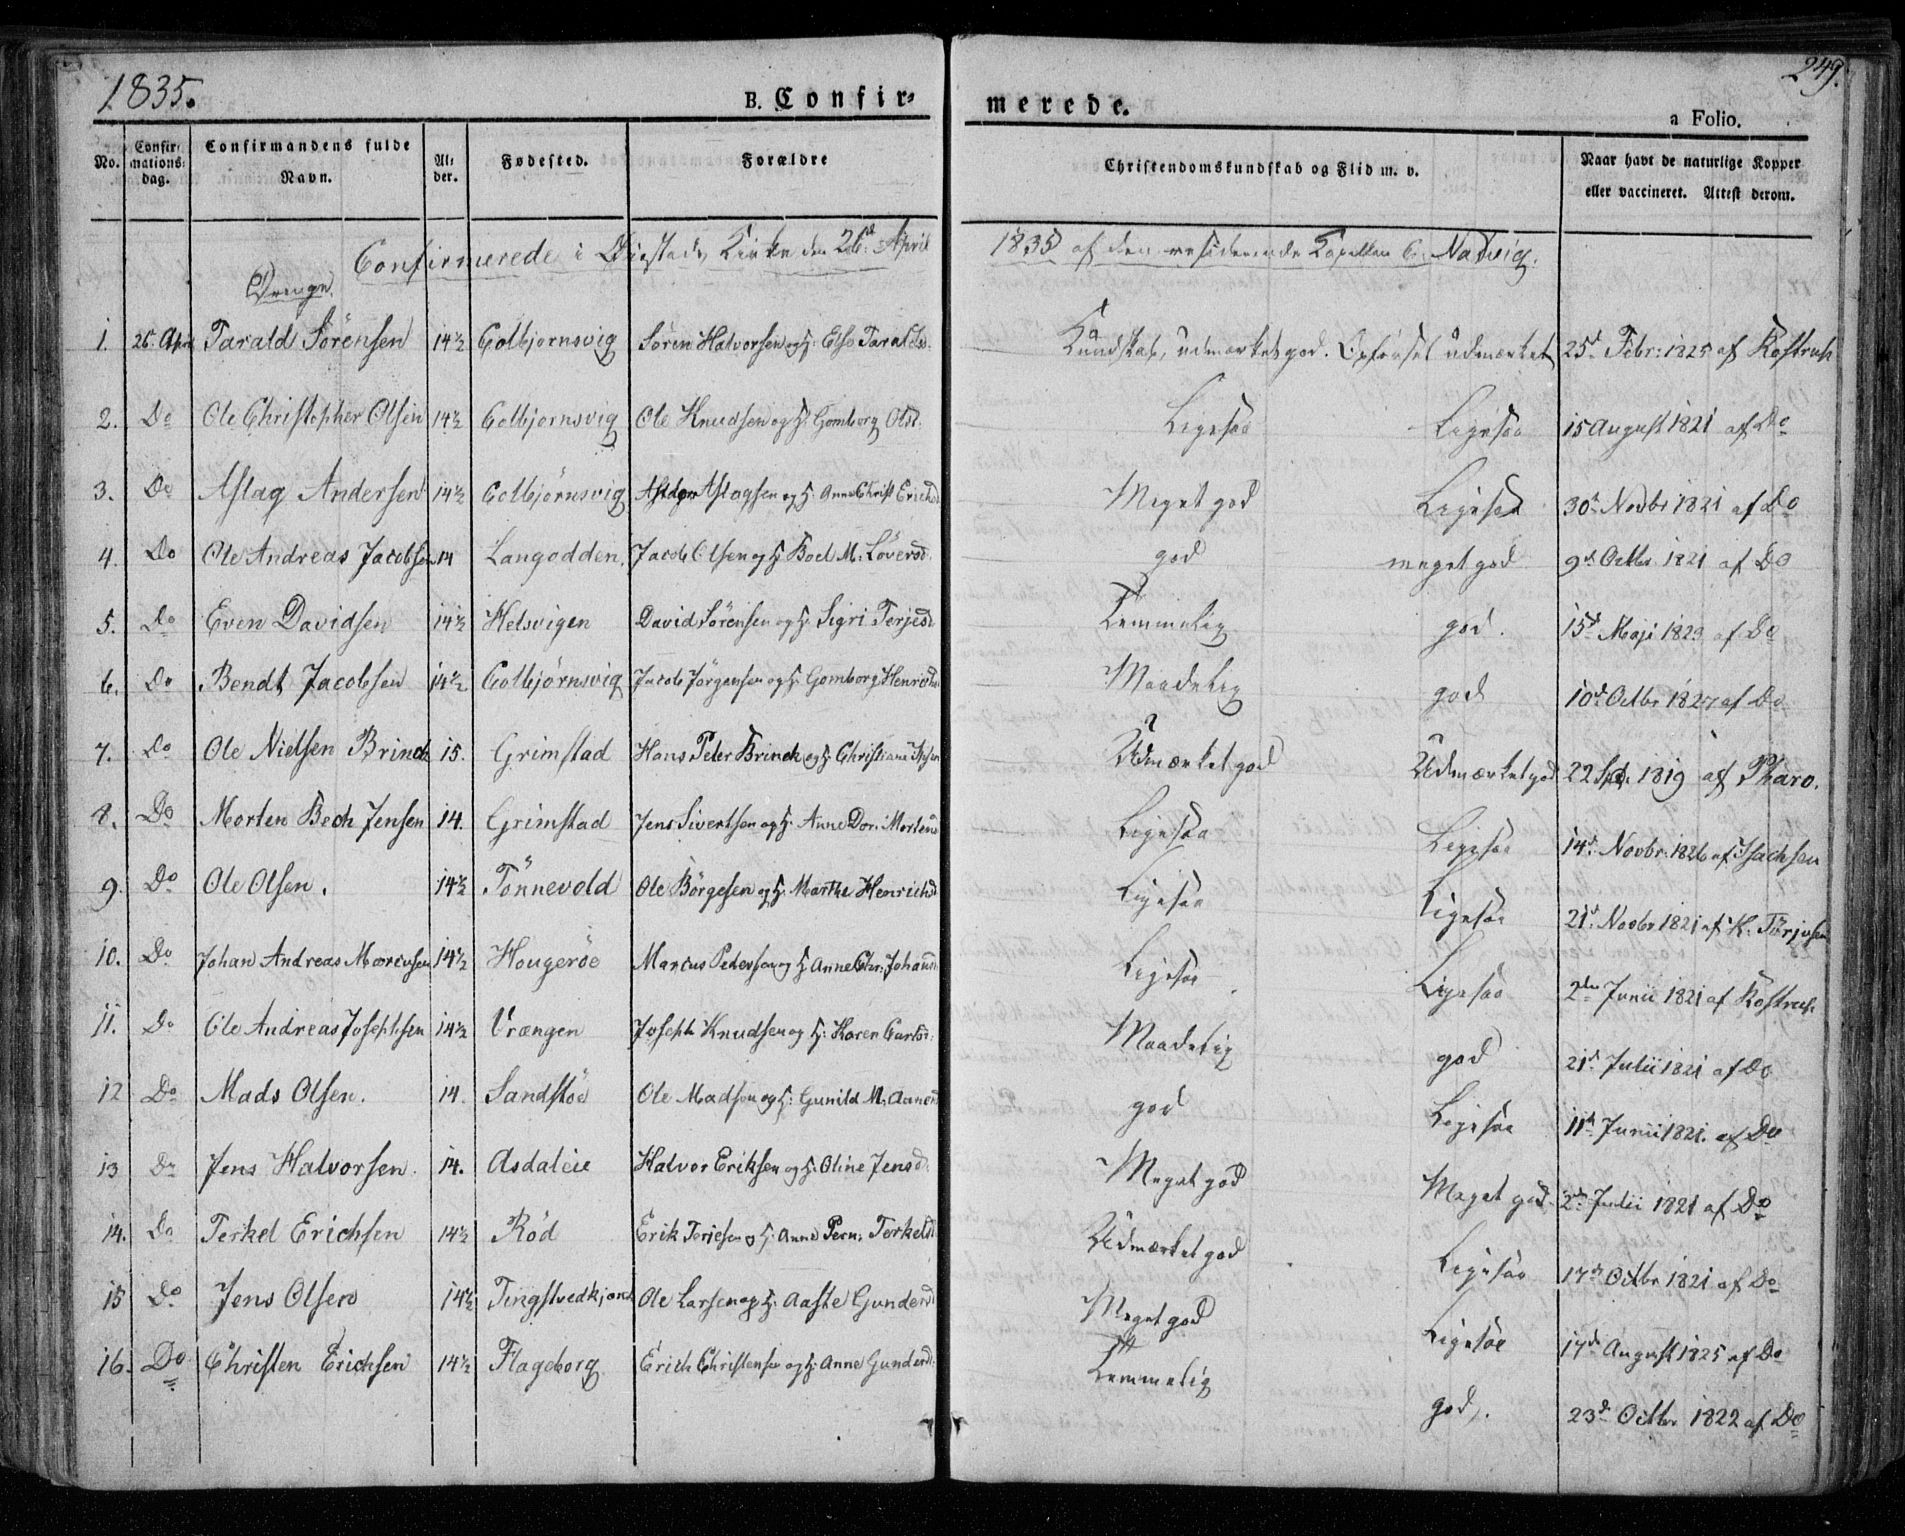 1835.
B. Confir-
merede.
249.
a Folio.
No.
Confir-
mations-
dag.
Confirmandens fulde
Navn.
Al-
der.
Fødested.
Forældre
Christendomskundskab og Flid m. v.
Naar havt de naturlige Kopper
eller vaccineret. Attest derom.
Confirmerede i Øiestads Kirke den 26d April 1835 af den residerende Capellan C. Natvig.
Drenge.
1. 26. April Tarald Sörensen 14½ Colbjornsvig Sören Halvorsen og H: Else Taraldsd. Kundskab, udmærket god. Opførsel udmærket 25d Febr: 1825 af Kostrub
2. Do Ole Christopher Olsen 14½ Colbjornsvig Ole Knudsen og H: Gomborg Olsd. Ligesaa Ligesaa 15 August 1821 af Do
3. Do Aslag Andersen 14½ Colbjörnsvig Aslagsen og H: Anne Christ Erichsd Meget god Ligesaa 30d Novbr 1821 af Do
4. Do Ole Andreas Jacobsen 14 Langodden. Jacob Olsen og H: Boel M. Löversd. god meget god 9d Octbr 1821 af Do
5. Do Even Davidsen 14½ Helsvigen David Sörensen og H: Sigri Terjesd Temmelig god. 15d Maji 1823 af Do
6. Do Bendt Jacobsen 14½ Colbjörnsvig Jacob Jörgensen og H: Gomborg Henrichsd Maadelig god 10d Octbr 1827 af Do
7. Do Ole Nielsen Brinck 15. Grimstad Hans Peter Brinck og H: Christiane Udmærket god Udmærket god 22 Sept. 1819 af Pharo.
8. Do Morten Bech Jensen 14. Grimstad Jens Sivertsen og H: Anne Dor: Mortensd Ligesaa Ligesaa 14d Novbr. 1826 af Isachsen
9. Do Ole Olsen. 14½ Tönnevold Ole Börgesen og H: Marthe Henrichsd Ligesaa Ligesaa 21d Novbr 1821 af K. Törjesen
10. Do Johan Andreas Marcusen 14½ Hougeröe Marcus Pedersen og H: Anne Chr: Johannsd Ligesaa Ligesaa 2den Junii 1821 af Kostrub.
11. Do Ole Andreas Josephsen 14½ Vrængen Joseph Knudsen og H: Karen Carlsd: Maadelig god 21d Julii 1821 af Do
12 Do Mads Olsen. 14. Sandstöe Ole Madsen og H: Gunild M. Aanensd god Ligesaa 11te Junii 1821. af Do
13 Do Jens Halvorsen. 14. Asdaleie Halvor Eriksen og H: Oline Jensd. Meget god Meget god 2d Julii 1821 af Do
14. Do Terkel Erichsen 14½ Röd Erik Terjesen og H: Anne Pern: Terkelsd Udmærket god Ligesaa 17d Octbr 1821 af Do
15 Do Jens Olsen 14½ Tingstvedkjend Ole Larsen og H: Aaste Gundersd Meget god Ligesaa 17de August 1825 af Do
16. Do Christen Erichsen 14½ Flageborg Erich Christensen og H: Anne Gundersd. Temmelig god. 23d Octbr 1822 af Do